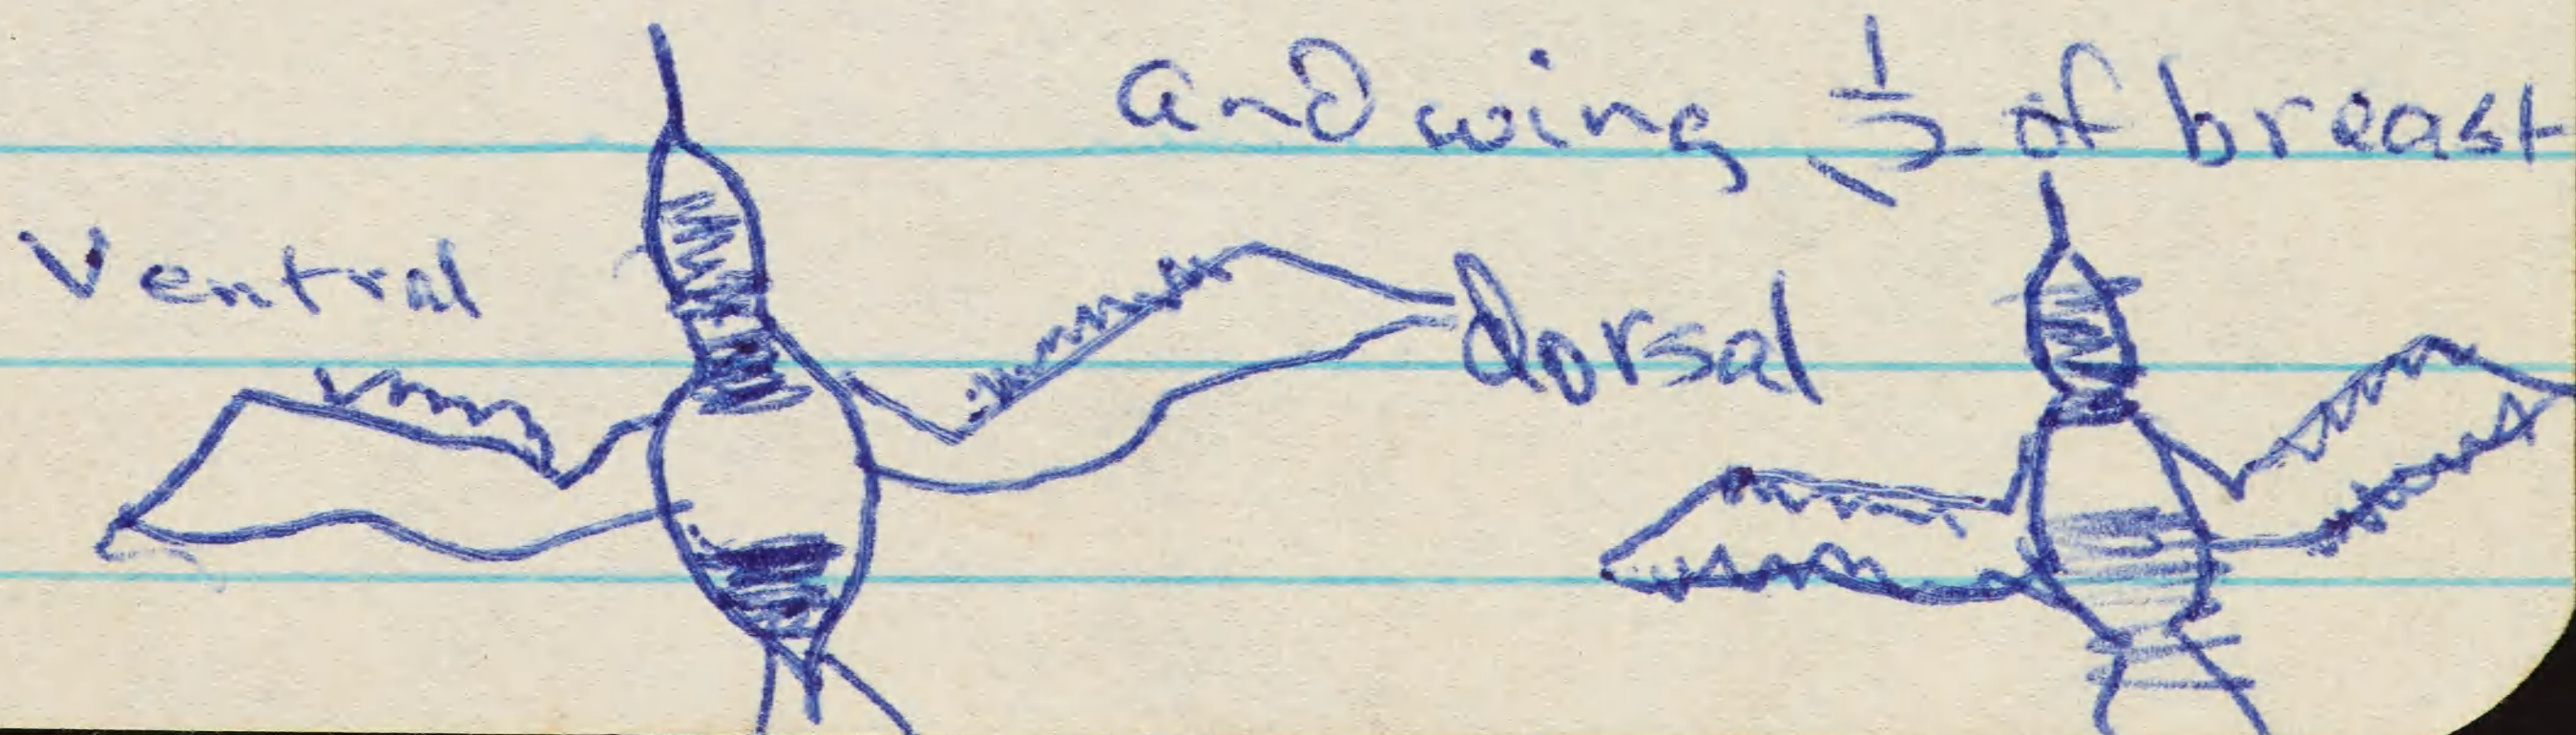 and wing 1/2 of breast
Ventral
dorsal